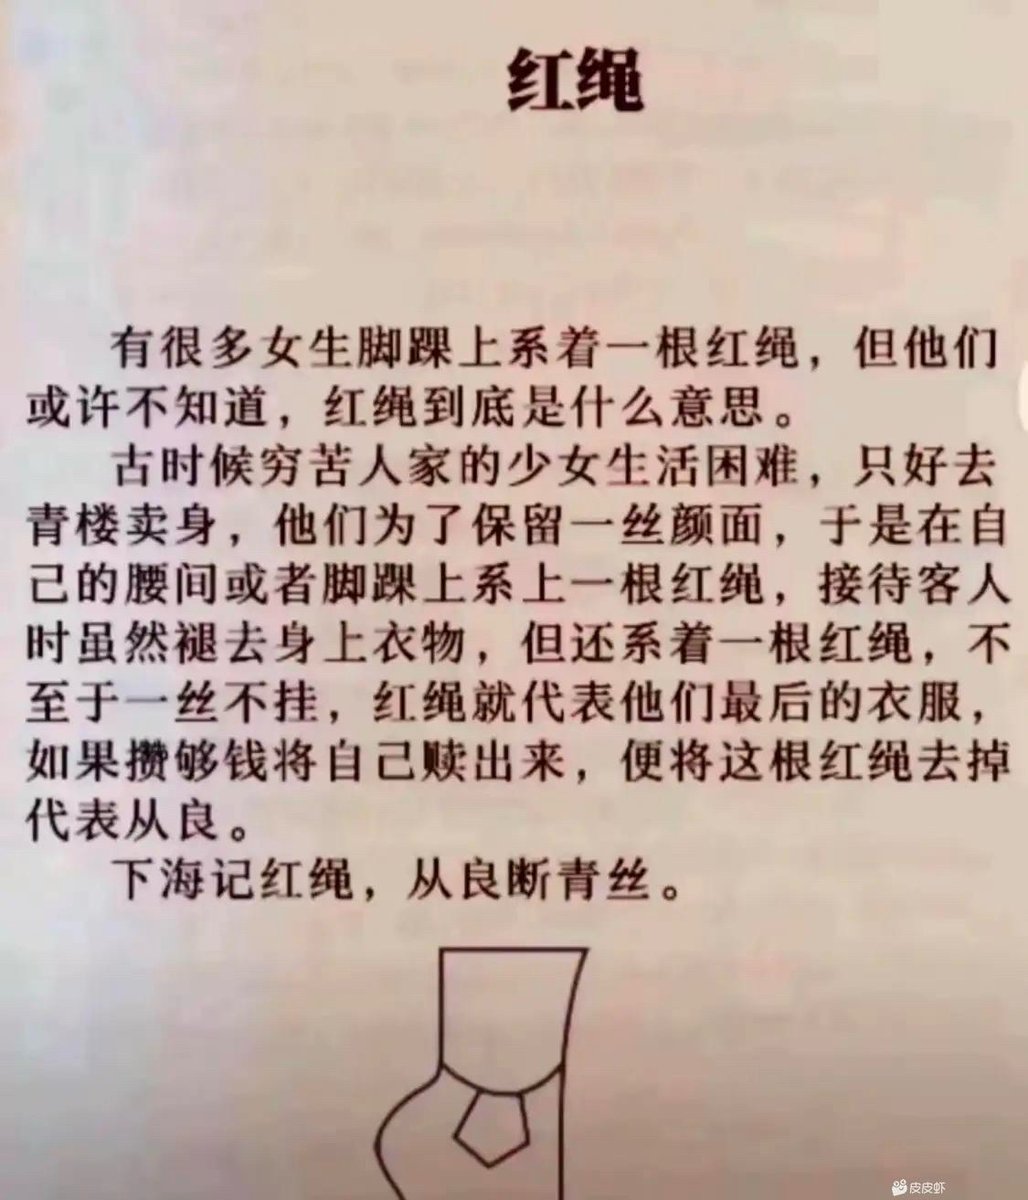 红绳
有很多女生脚踝上系着一根红绳，但他们
或许不知道，红绳到底是什么意思。
古时候穷苦人家的少女生活困难，只好去
青楼卖身，他们为了保留一丝颜面，于是在自
己的腰间或者脚踝上系上一根红绳，接待客人
时虽然褪去身上衣物，但还系着一根红绳，不
至于一丝不挂，红绳就代表他们最后的衣服，
如果攒够钱将自己赎出来，便将这根红绳去掉
代表从良。
下海记红绳，从良断青丝。
皮皮虾